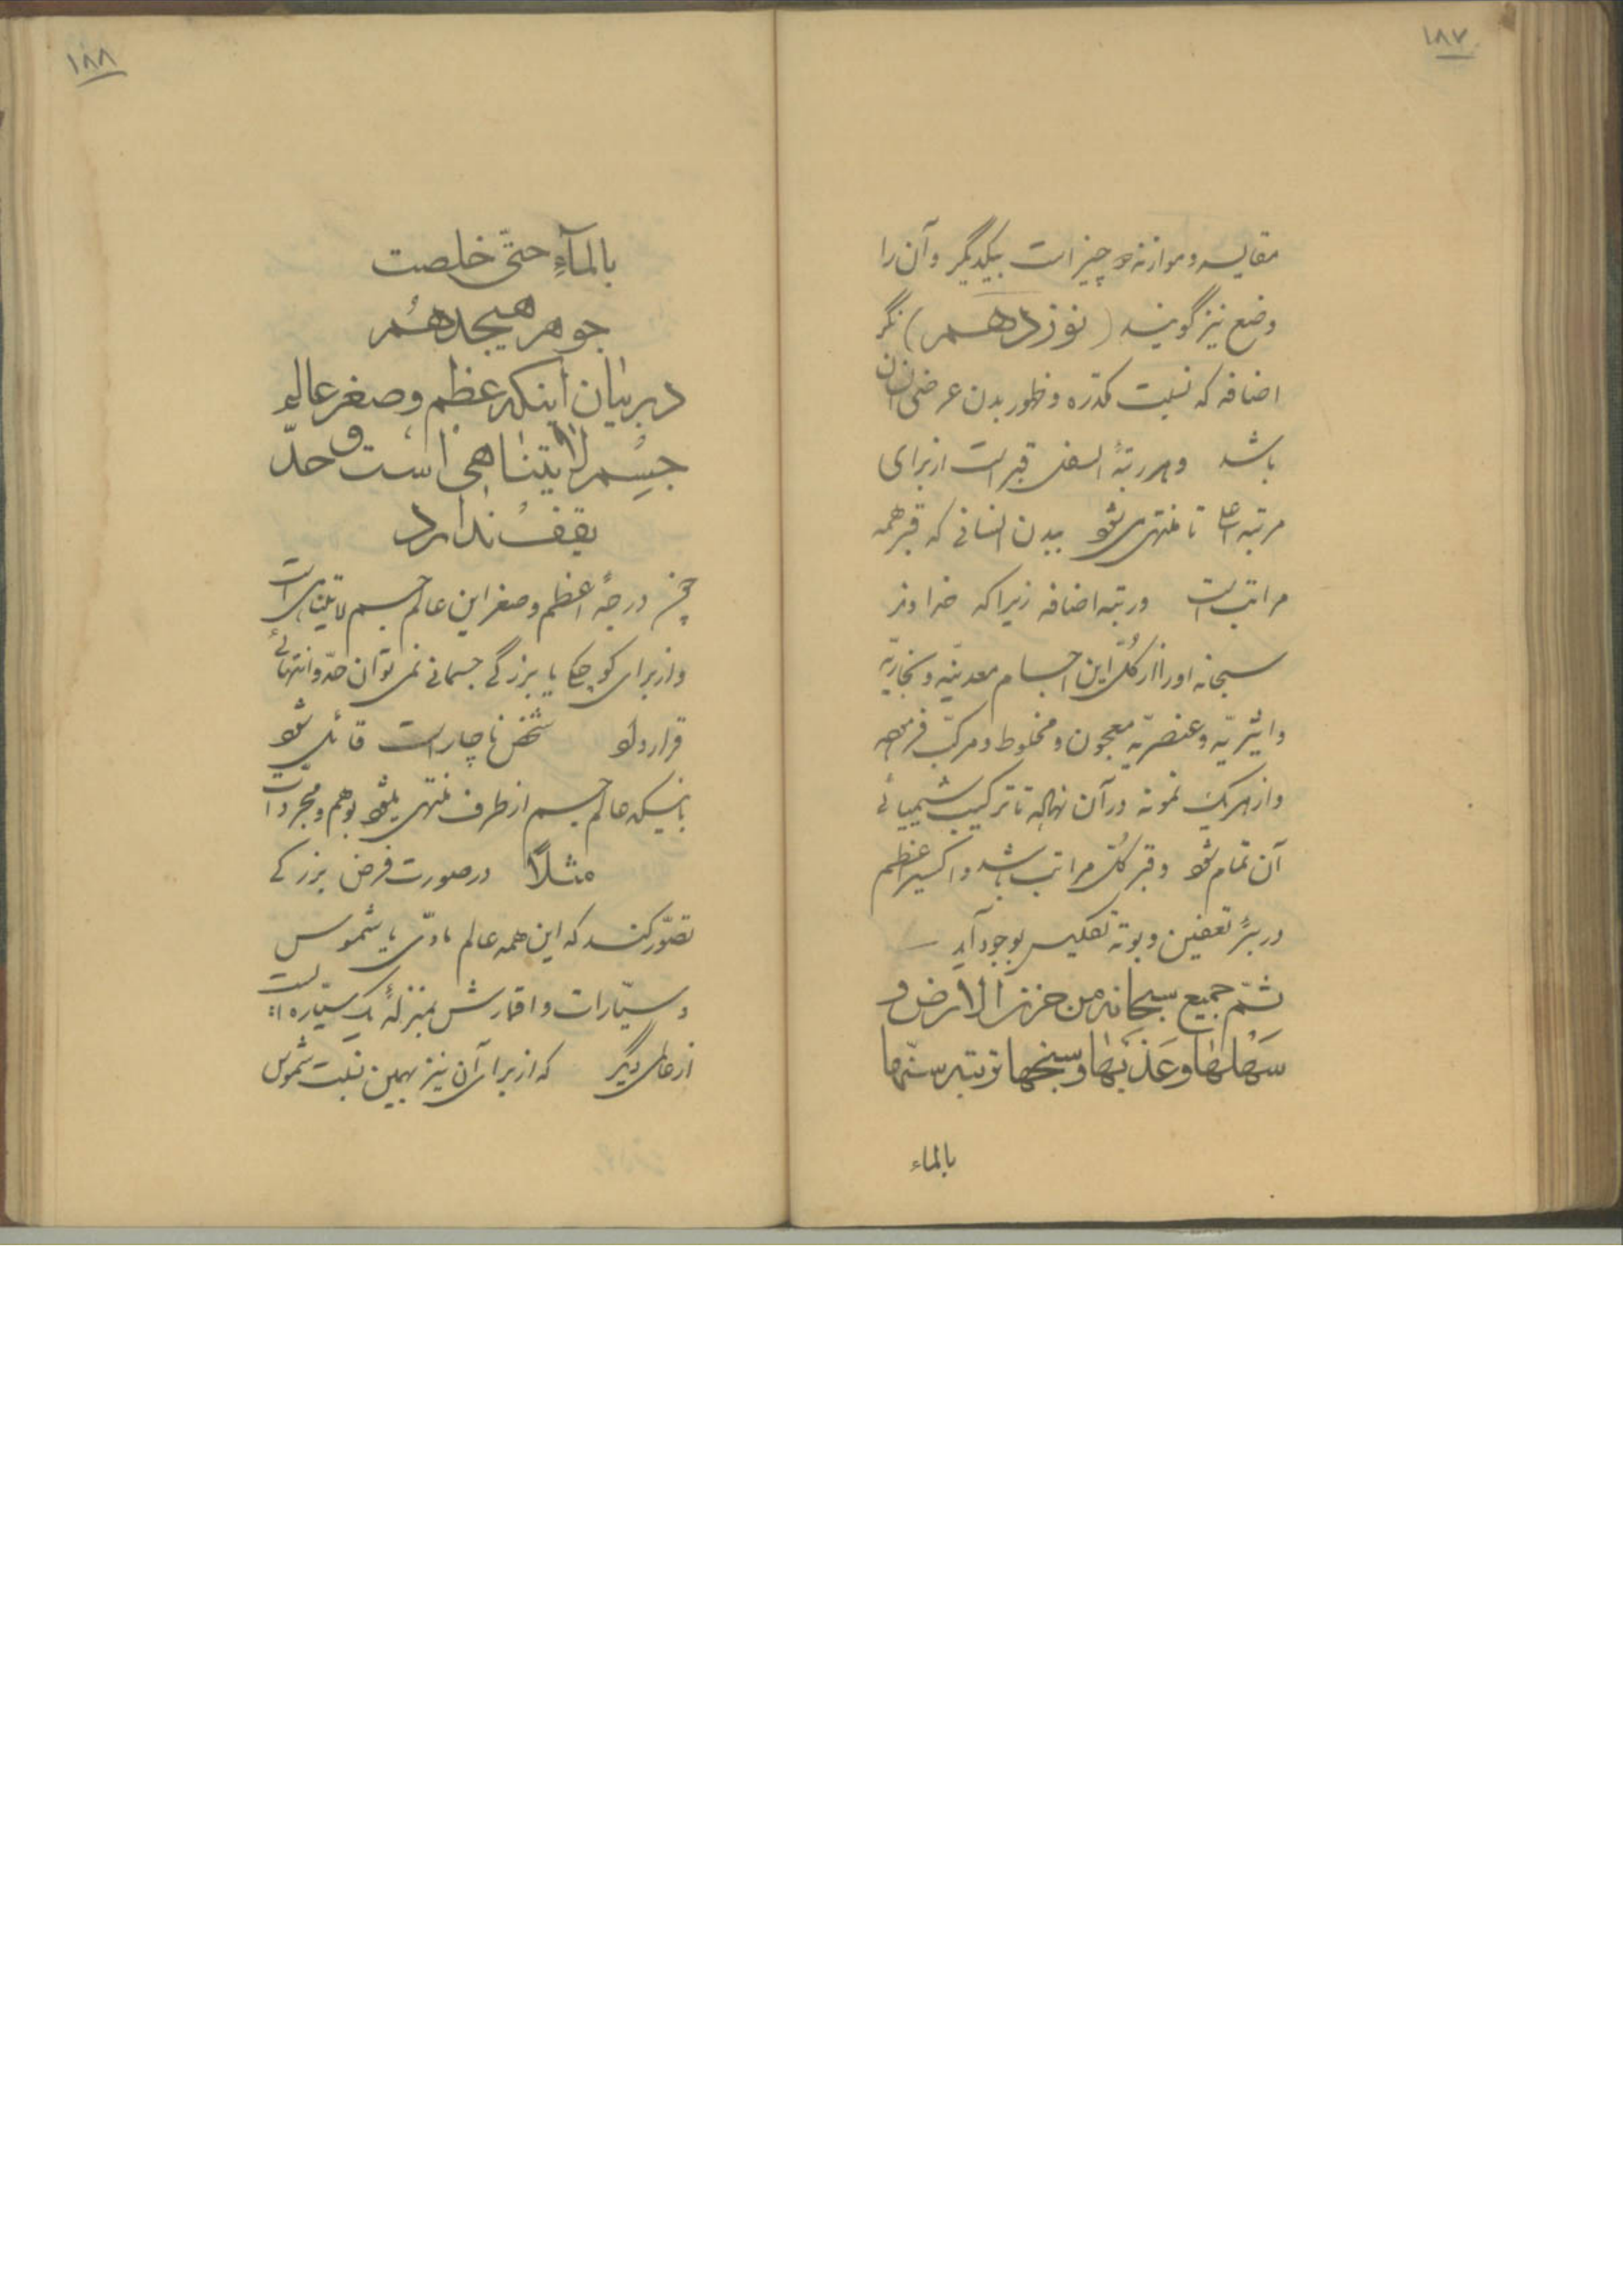 ١٨٧
مقایسه و موازنه دو چیز است بیکدیگر و آن را
وضع نیز گویند (نوزدهم)
اضافه که نسبت مکدره و ظهور بدن عرضی
باشد و هر رتبهٔ اسفل قبر است از برای
مرتبه اعلی تا منتهی شود ببدن انسانی که قبر همه
مراتب است و رتبه اضافه زیرا که خداوند
سبحانه او را از کلّ این اجسام معدنیّه و بخاریّه
و اثیریّه و عنصریّه معجون و مخلوط و مرکّب فرموده
و از هریک نمونه در آن نهاده تا ترکیب شیمیائی
آن تمام شود و قبر کُلّ مراتب باشد و اکسیر اعظم
در بئر تعفین و بوته تکلیس بوجود آید
ثمّ جمع سبحانه من حزن الارض و
سهلها وعذبها وسبخها تربة سنّها
بالماء
١٨٨
بالمآءِ حتّی خلصت
جوهر هیجدهُم
در بیان اینکه عظم و صغر عالم
جسم لا یتناهی است و حدّ
یقف ندارد
چون درجهٔ اعظم و صغر این عالم جسم لایتناهی است
و از برای کوچکی یا بزرگی جسمانی نمی توان حدّ و انتهائی
قرار داد شخص ناچار است قائل شود
باینکه عالم جسم از طرف منتهی میشود بوهم و مجردات
مثلاً در صورت فرض بزرگی
تصوّر کنند که این همه عالم مادّی با شموس
و سیّارات و اقمارش بمنزلهٔ یک سیّاره است
از عالمی دیگر که از برای آن نیز بهمین نسبت شموس